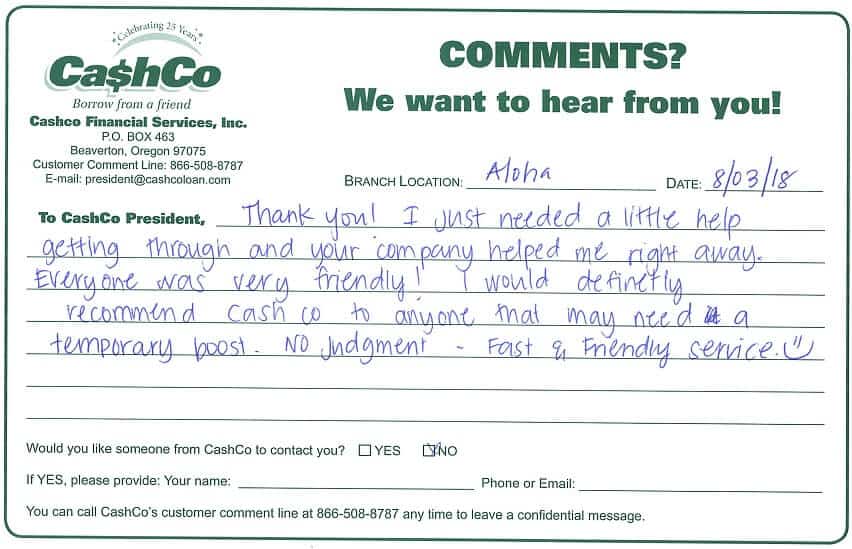 Celebrating 25 Years
Ca$hCo
Borrow from a friend
Cashco Financial Services, Inc.
P.O. BOX 463
Beaverton, Oregon 97075
Customer Comment Line: 866-508-8787
E-mail: president@cashcoloan.com
COMMENTS?
We want to hear from you!
BRANCH LOCATION: Aloha DATE: 8/03/18
To CashCo President, Thank you! I just needed a little help
getting through and your company helped me right away.
Everyone was very friendly! I would definetly
recommend Cash co to anyone that may need a
temporary boost. No Judgment - Fast & Friendly service.
Would you like someone from CashCo to contact you? YES NO
If YES, please provide: Your name: Phone or Email:
You can call CashCo's customer comment line at 866-508-8787 any time to leave a confidential message.